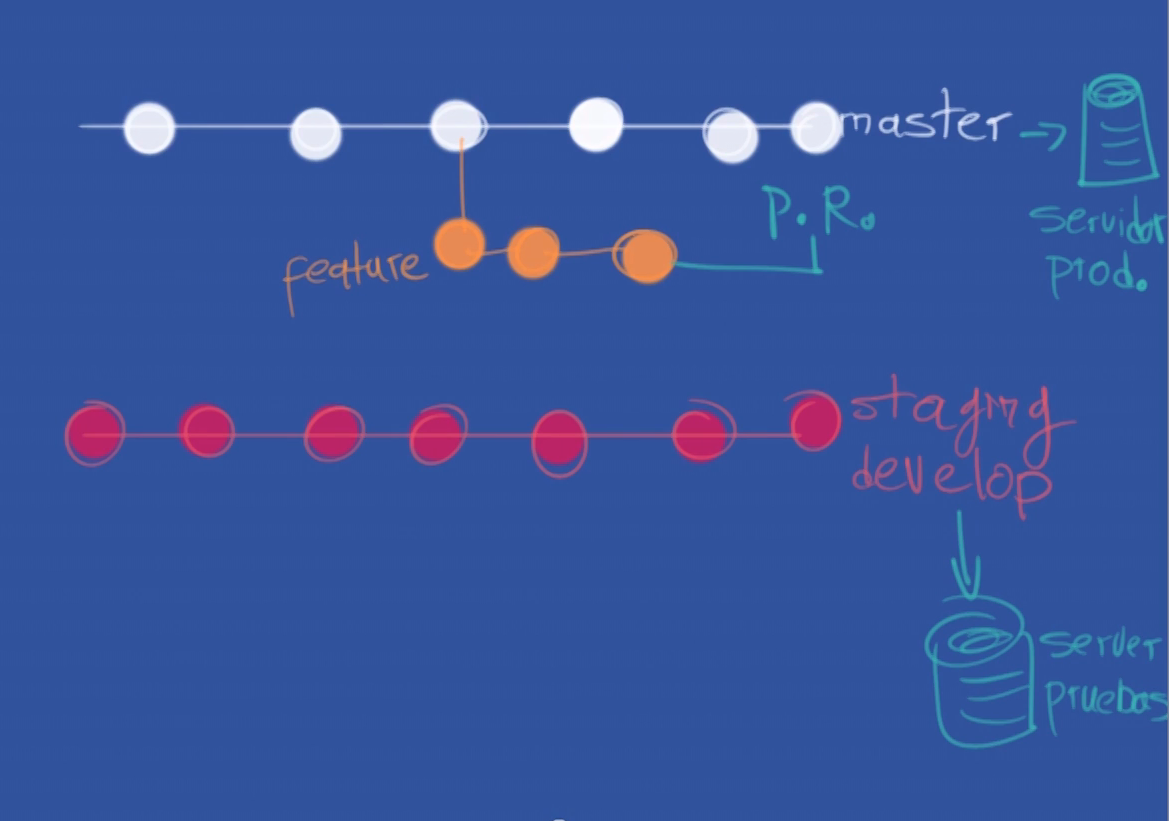 master →
P. R.
servidor
prod.
feature
staging
develop
server
pruebas